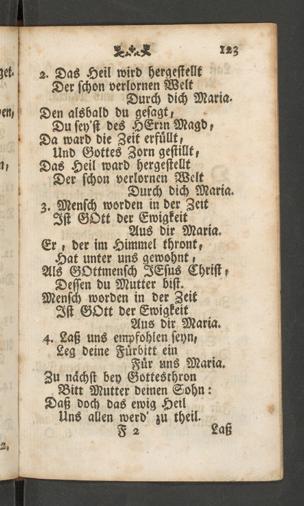 123
2. Das Heil wird hergestellt
Der schon verlornen Welt
Durch dich Maria.
Den alsbald du gesagt,
Du sey'st des HErrn Magd,
Da ward die Zeit erfüllt,
Und Gottes Zorn gestillt,
Das Heil ward hergestellt
Der schon verlornen Welt
Durch dich Maria.
3. Mensch worden in der Zeit
Ist GOtt der Ewigkeit
Aus dir Maria.
Er, der im Himmel thront,
Hat unter uns gewohnt,
Als GOttmensch JEsus Christ,
Dessen du Mutter bist.
Mensch worden in der Zeit
Ist GOtt der Ewigkeit
Aus dir Maria.
4. Laß uns empfohlen seyn,
Leg deine Fürbitt ein
Für uns Maria.
Zu nächst bey Gottesthron
Bitt Mutter deinen Sohn:
Daß doch das ewig Heil
Uns allen werd' zu theil.
F 2 Laß